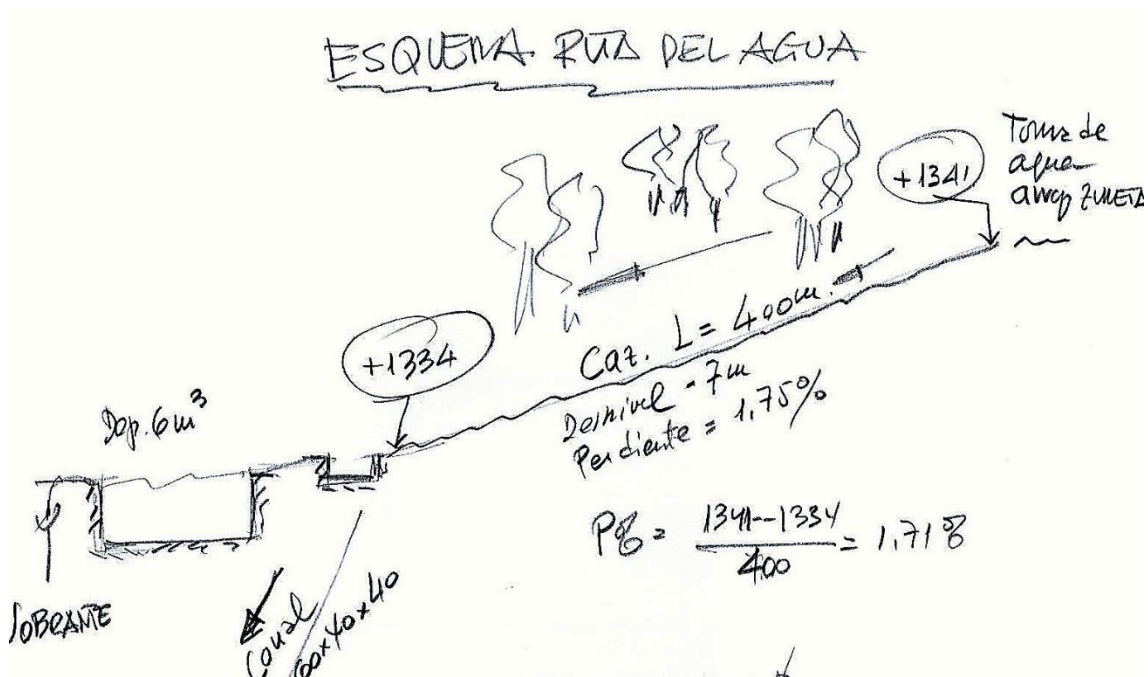 ESQUEMA RUTA DEL AGUA
Toma de
agua
arroyo ZURETA
+1341
+1334
Caz. L = 400m.
Desnivel = 7m
Pendiente = 1,75%
Dep. 6m³
P% = 1341-1334 / 400 = 1,71%
SOBRANTE
Canal
60x40x40